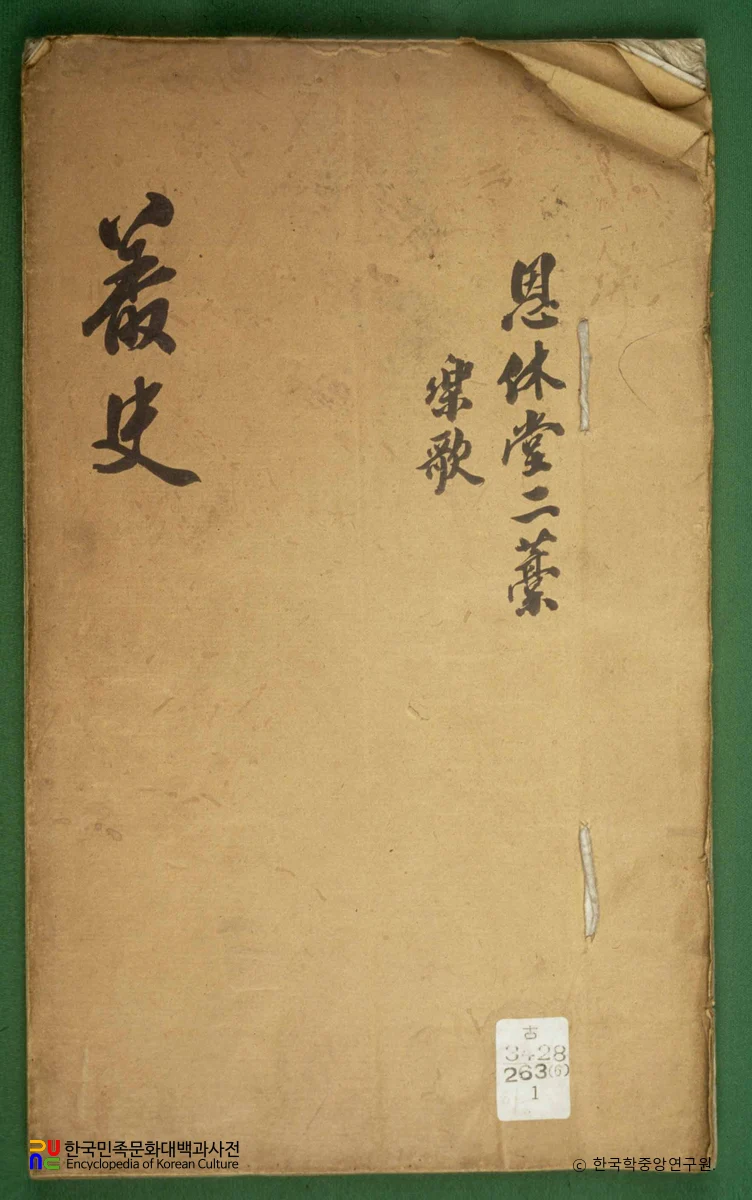 恩休堂二藁
樂歌
叢史
古
3428
263(6)
1
한국민족문화대백과사전
Encyclopedia of Korean Culture
© 한국학중앙연구원